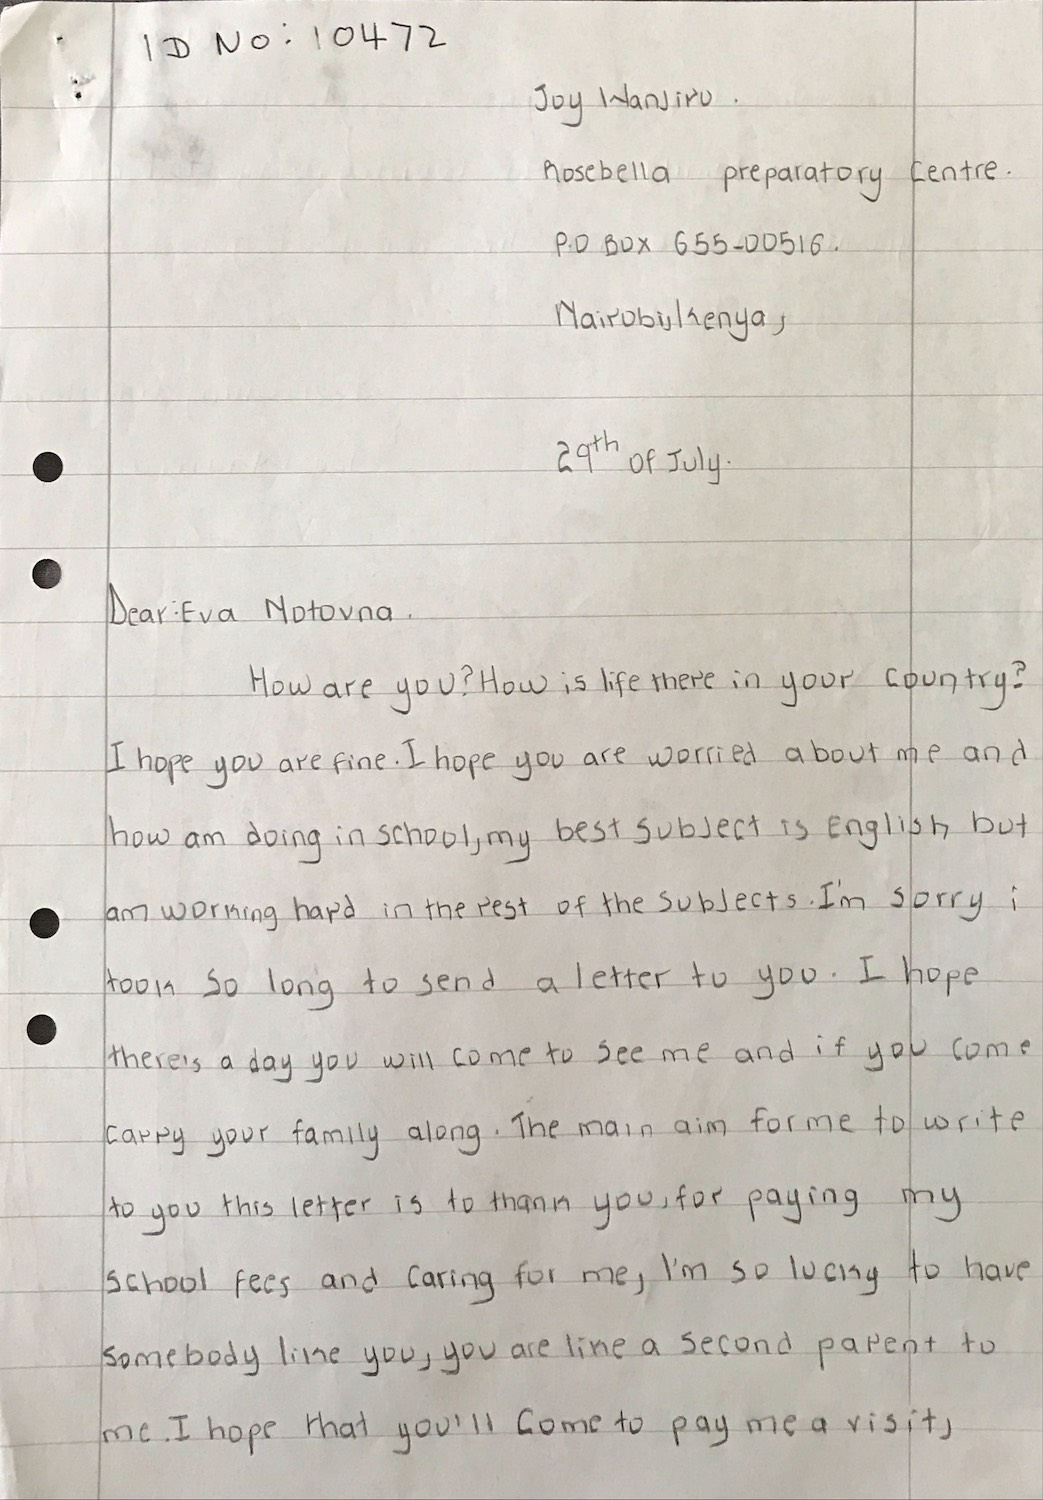 ID No: 10472
Joy Wanjiru.
Rosebella preparatory Centre.
P.O BOX 655-00516.
Nairobi,Kenya,
29th of July.
Dear:Eva Notovna.
How are you? How is life there in your country?
I hope you are fine. I hope you are worried about me and
how am doing in school, my best subject is English but
am working hard in the rest of the subjects. I'm sorry i
took so long to send a letter to you. I hope
there's a day you will come to see me and if you come
carry your family along. The main aim for me to write
to you this letter is to thank you, for paying my
school fees and caring for me, I'm so lucky to have
somebody like you, you are like a second parent to
me. I hope that you'll come to pay me a visit,